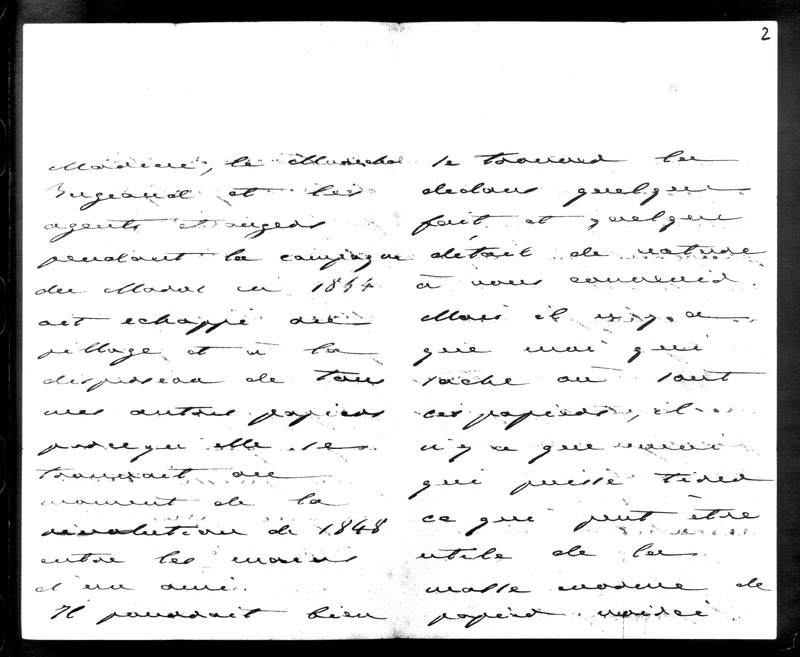 2
Marine, le Maréchal
Bugeaud et les
agents étrangers
pendant la campagne
du Maroc en 1844
ait echappé au
pillage et à la
dispersion de tous
mes autres papiers
parcequ'elle se
trouvait au
moment de la
révolution de 1848
entre les mains
d'un ami.
Il pourrait bien
se trouver là
dedans quelque
fait et quelque
détail de nature
à vous convenir.
Mais il n'y a
que moi qui
sache où sont
ces papiers, il
n'y a que moi
qui puisse tirer
ce qui peut être
utile de la
masse enorme de
papier noirci